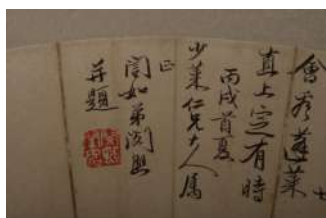 會看蓬萊
直上定有時
丙戌首夏
少萊仁兄大人属
正
閏如弟
并題